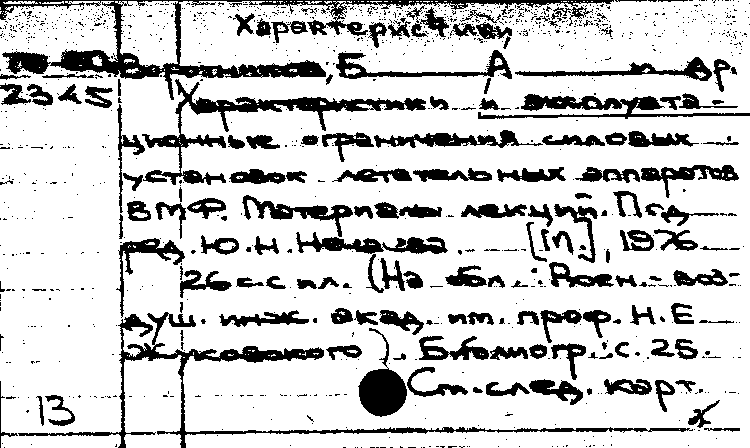 Характеристики
Воротников, Б. А. и др.
2345 Характеристики и эксплуата-
ционные ограничения силовых
установок летательных аппаратов
ВМФ. Материалы лекций. Под
ред. Ю.Н. Нечаева. [М.], 1976.
26 с. с ил. (На обл.: Воен.-воз-
душ. инж. акад. им. проф. Н.Е.
Жуковского). Библиогр.: с. 25.
См. след. карт.
13